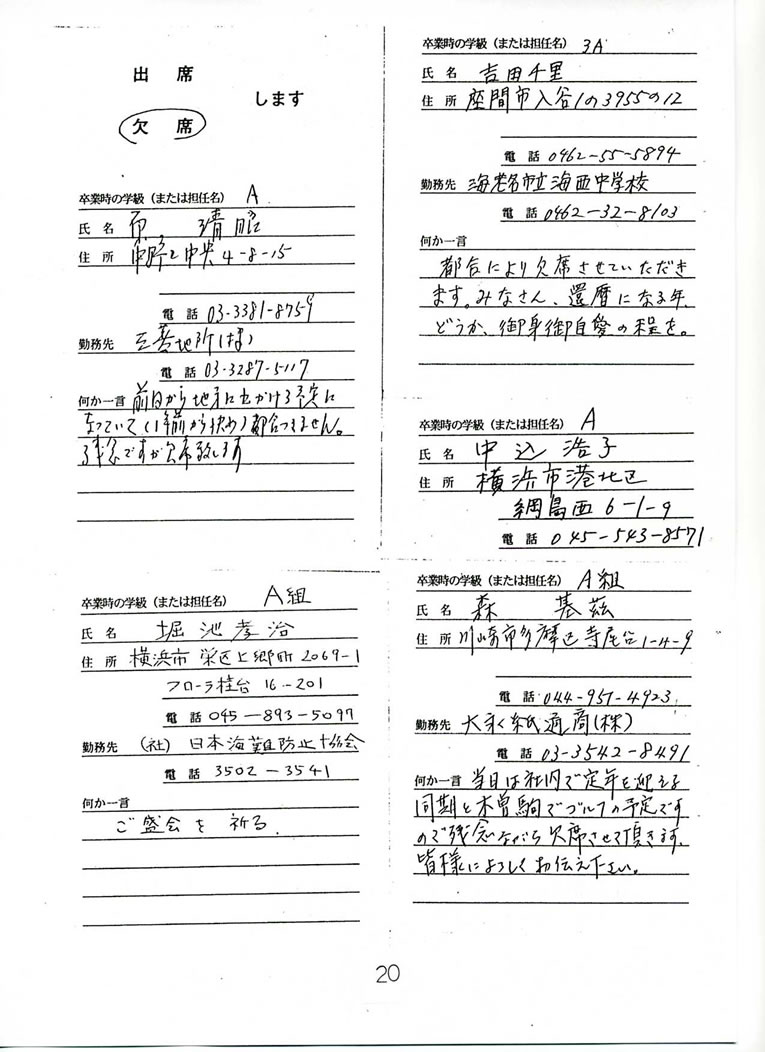 出 席
します
欠 席
卒業時の学級（または担任名） A
氏 名 原 靖昭
住 所 中野区中央4-8-15
電 話 03-3381-8759
勤務先 三菱地所(株)
電 話 03-3287-5117
何か一言 前日から地方に出かける予定に
なっていて(1年前から決め)都合つきません。
残念ですが欠席致します
卒業時の学級（または担任名） A組
氏 名 堀池孝治
住 所 横浜市 栄区上郷町2069-1
フローラ桂台 16-201
電 話 045-893-5097
勤務先 (社) 日本海難防止協会
電 話 3502-3541
何か一言
ご盛会を 祈る.
卒業時の学級（または担任名） 3A
氏 名 吉田千里
住 所 座間市入谷1の3955の12
電 話 0462-55-5894
勤務先 海老名市立海西中学校
電 話 0462-32-8103
何か一言
都合により欠席させていただき
ます。みなさん、還暦になる年、
どうか、御身御自愛の程を。
卒業時の学級（または担任名） A
氏 名 中込 浩子
住 所 横浜市港北区
綱島西 6-1-9
電 話 045-543-8571
卒業時の学級（または担任名） A組
氏 名 森 基茲
住 所 川崎市多摩区寺尾台1-4-9
電 話 044-951-4923
勤務先 大永紙通商(株)
電 話 03-3542-8491
何か一言 当日は社内で定年を迎える
同期と木曽駒でゴルフの予定です
ので残念ながら欠席させて頂きます.
皆様によろしくお伝え下さい。
20